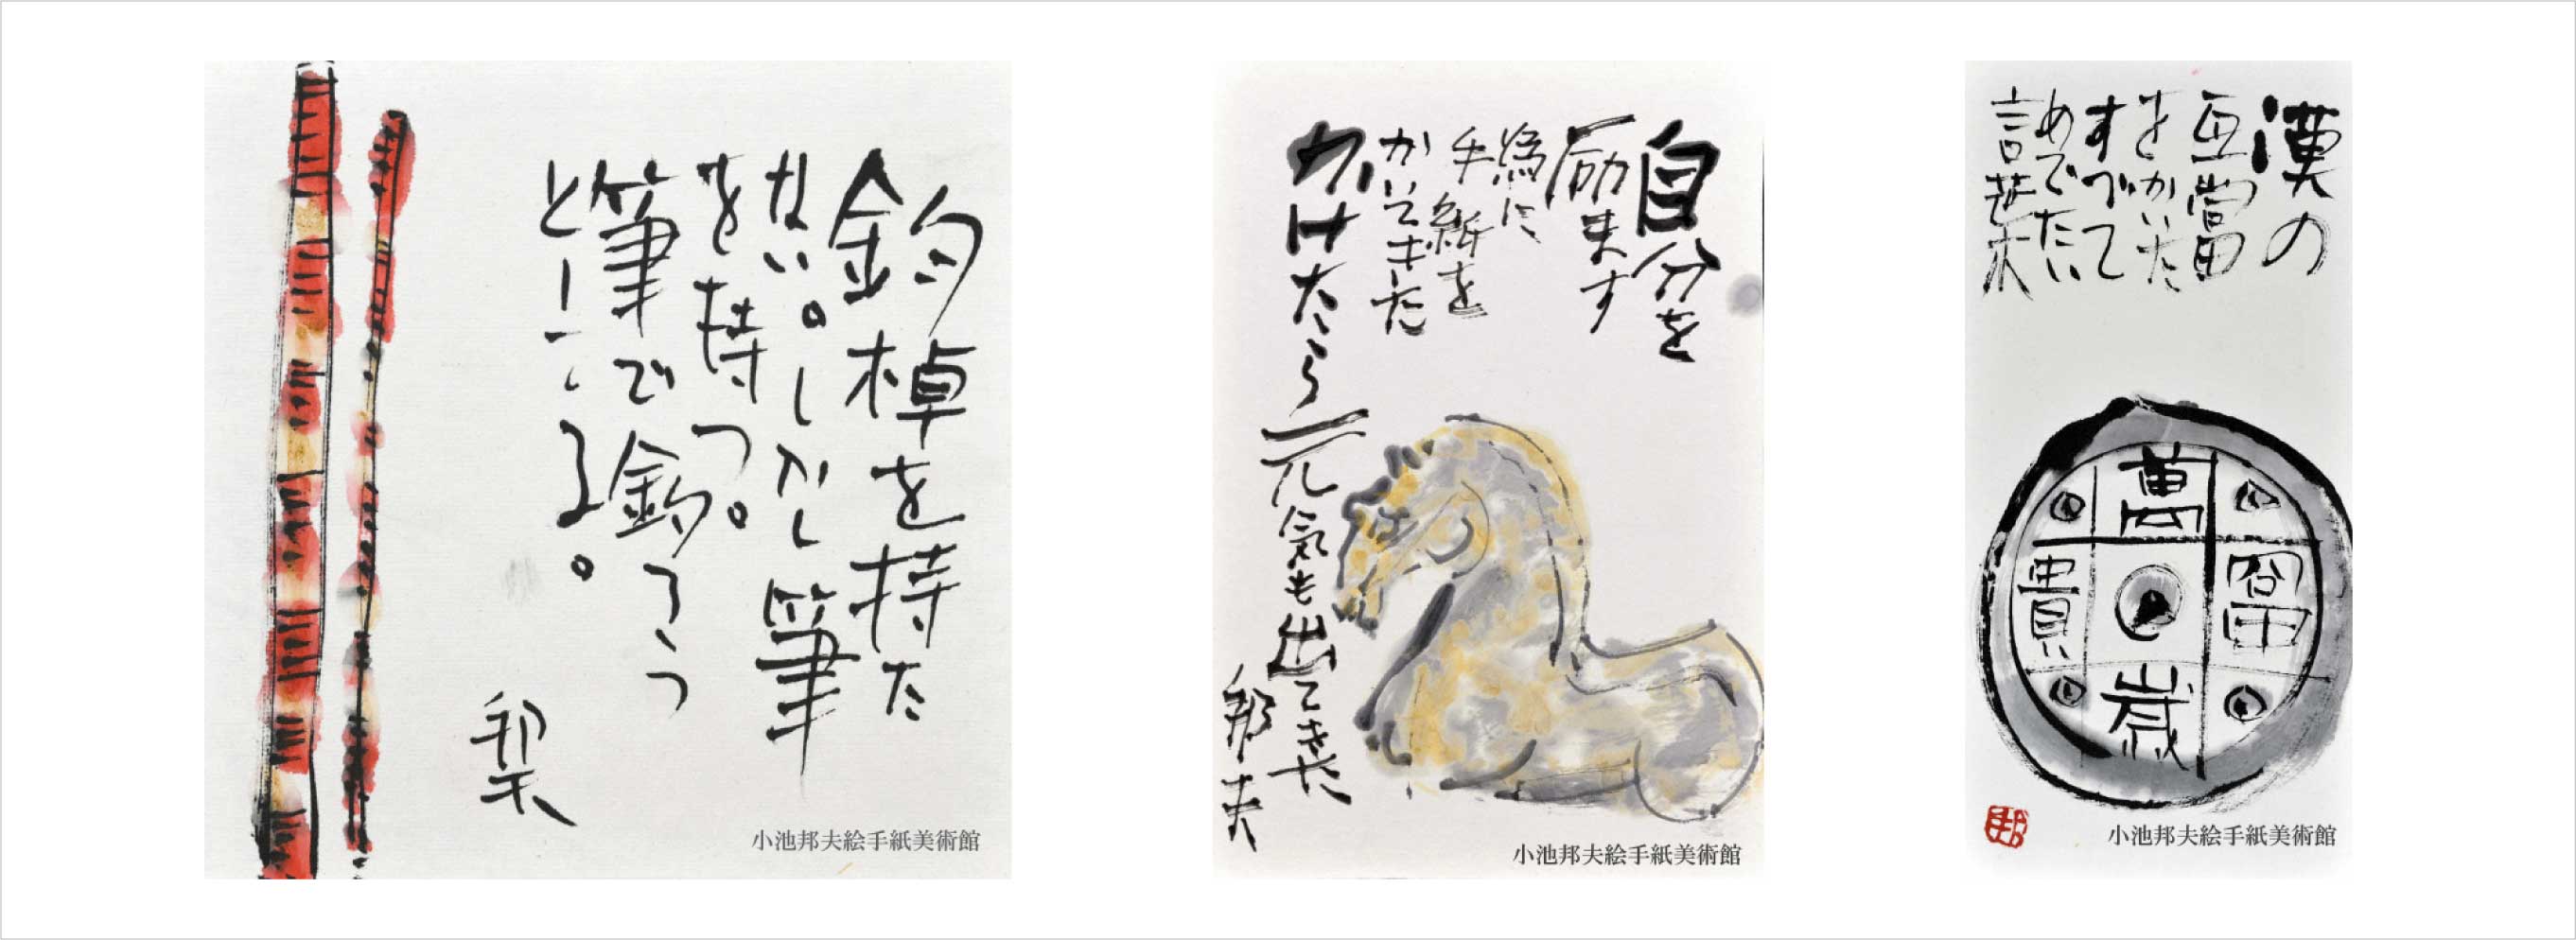 釣棹を持た
ない。しかし筆
を持つ。
筆で釣ろう
としている。
邦夫
小池邦夫絵手紙美術館
自分を
励ます
為に
手紙を
かいてきた
かけたら元気も出てきた
邦夫
小池邦夫絵手紙美術館
漢の
瓦當
をかいた
すべて
めでたい
言葉
萬
歳
富
貴
邦
小池邦夫絵手紙美術館